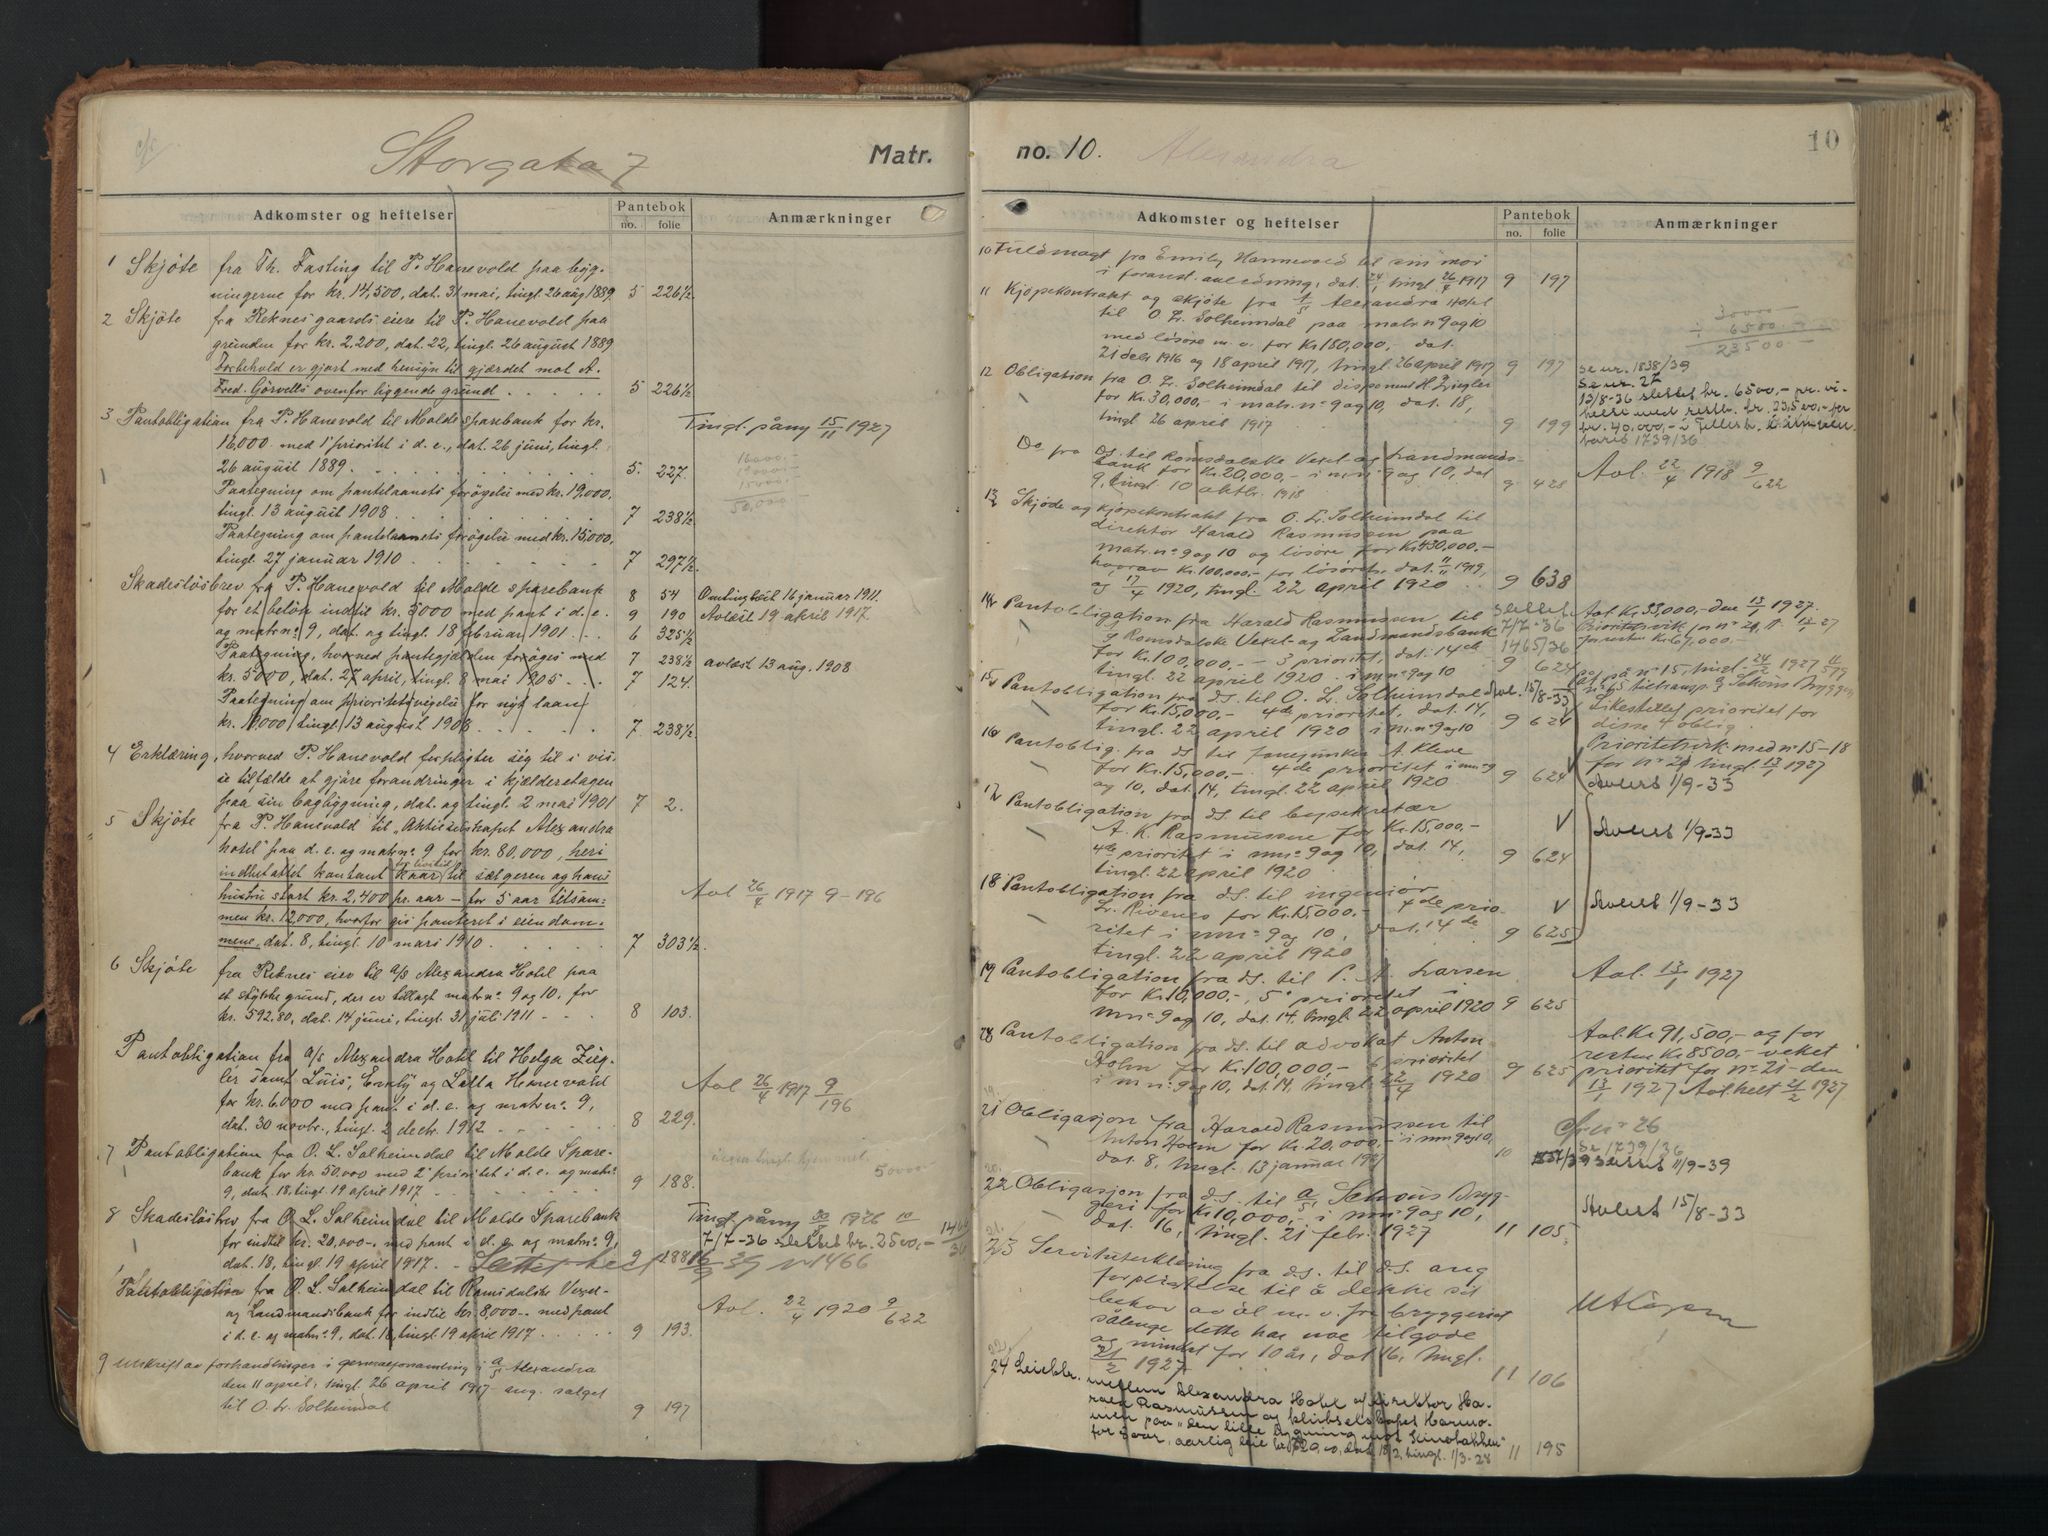 Storgata 7
Matr.
Adkomster og heftelser
Pantebok
no. folie
Anmærkninger
1 Skjöte fra Th. Fasting til P. Hanevold paa byg-
ningerne for kr. 14,500, dat. 31 mai, tingl. 26 aug 1889. 5 226½
2 Skjöte fra Reknes gaards eiere til P. Hanevold paa
grunden for kr. 2,200, dat. 22, tingl. 26 august 1889
Forbehold er gjort med hensyn til gjærdet mot A.
Fred. Görvells ovenfor liggende grund . . . . . 5 226½
3 Pantobligation fra P. Hanevold til Molde sparebank for kr. Tingl. påny 15/11 1927
16,000 med 1' prioritet i d. e., dat. 26 juni, tingl. 16000.-
26 august 1889. . . . . . . . 5. 227. 19000.-
Paategning om pantelaanets forögelse med kr. 19,000, 15000.-
tingl. 13 august 1908 . . . . . . 7 238½ 50,000
Paategning om pantelaanets forögelse med kr. 15,000,
tingl. 27 januar 1910 . . . . . . 7 297½
Skadeslösbrev fra P. Hanevold til Molde sparebank 8 54 Omtinglæst 16 januar 1911.
for et belöp indtil kr. 5000 med pant i d. e. 9 190 Avlæst 19 april 1917.
og matr nº 9, dat. og tingl. 18 februar 1901 . . . 6 325½
Paategning, hvorved pantegjælden foröges med 7 238½ avlæst 13 aug. 1908
kr. 5000, dat. 27 april, tingl. 8 mai 1905 . . . 7 124.
Paategning om prioritetsvigelse for nyt laan
kr. 19,000, tingl. 13 august 1908 . . . . . 7 238½
4 Erklæring, hvorved P. Hanevold forpligter sig til i vis-
se tilfælde at gjöre forandringer i kjælderetagen
paa sin bagbygning, dat. og tingl. 2 mai 1901 7 2.
5 Skjöte fra P. Hanevold til "Aktieselskapet Alexandra
hotel" paa d. e. og matr nº 9 for kr. 80,000, heri
indbefattet kontant kaar til sælgeren og hans
hustru stort kr. 2,400 pr. aar - for 5 aar tilsam- Avl 26/4 1917 9-196
men kr. 12,000, hvorfor gis panteret i eiendom-
mene, dat. 8, tingl. 10 mars 1910 . . . . 7 303½
6 Skjöte fra Reknes eier til a/s Alexandra Hotel paa
et stykke grund, der er tillagt matr nº 9 og 10. for
kr. 592.80, dat. 14 juni, tingl. 31 juli 1911 - - - 8 103.
Pantobligation fra a/s Alexandra Hotel til Helga Zieg-
ler samt Luis, Emily og Lalla Hanevold Avl 26/4 1917 9/196
for kr. 6,000 med pant i d. e. og matr nº 9,
dat. 30 novbr., tingl. 2 decbr. 1912 . . . . 8 229.
7 Pantobligation fra O. L. Solheimdal til Molde Spare-
bank for kr. 50,000 med 2' prioritet i d. e. og matr nº 50000
9, dat. 18, tingl. 19 april 1917 . . . . . 9 188.
8 Skadeslösbrev fra O. L. Solheimdal til Molde Sparebank Tingl. påny 1926
for indtil kr. 20,000-. med pant i d. e. og matr nº 9, 7/7-36 slettet kr. 2500,- 1466/36
dat. 18, tingl. 19 april 1917. - Slettet 9 188
Pantobligation fra O. L. Solheimdal til Romsdalske Vexel-
og Landmandsbank for indtil kr. 8,000-. med pant Avl. 22/4 1920 9/622
i d. e. og matr nº 9, dat. 18, tingl. 19 april 1917. . . . . 9 193.
9 Utskrift av forhandlinger i generalforsamling i a/s Alexandra
den 11 april, tingl. 26 april 1917 ang. salget
til O. L. Solheimdal 9 197
no. 10. Alexandra 10
Adkomster og heftelser
Pantebok
no. folie
Anmærkninger
10 Fuldmagt fra Emily Hannevold til sin mor
i foranst. anledning, dat. 24/1 tingl. 26/4 1917 9 197
11 Kjöpekontrakt og skjöte fra a/s Alexandra Hotel 30000
til O. L. Solheimdal paa matr nº 9 og 10 6500.-
med lösöre m. v. for Kr 180,000, dat. 23500.-
21 debr 1916 og 18 april 1917, tingl. 26 april 1917 9 197 Se nr. 1838/39
12 Obligation fra O. L. Solheimdal til disponent H. Ziegler Se nr. 27
for Kr. 30,000,- i matr. nº 9 og 10, dat. 18, 13/8-36 slettet kr. 6500,-
tingl 26 april 1917 9 199 1739/36
Do fra ds. til Romsdalske Vexel- og Landmands-
bank for Kr. 20,000,- i m. nº 9 og 10, dat Avl. 22/4 1918 9/622
9, tingl. 10 oktbr. 1918 9 428
13 Skjöde og kjöpekontrakt fra O. L. Solheimdal til
direktör Harald Rasmussen paa
matr. nº 9 og 10 og lösöre for Kr. 430,000.-
hvorav Kr. 100,000,- for lösöret, dat. 11/11 1919,
og 17/4 1920, tingl. 22 april 1920 . . 9 638
14 Pantobligation fra Harald Rasmussen til Slettet Avl. Kr 33,000,- den 13/1 1927.
Romsdalske Vexel- og Landmandsbank 7/7-36
for Kr. 100,000,- - 3 prioritet, dat. 14de 1465/36
tingl. 22 april 1920 . i m nº 9 og 10 9 624
15 Pantobligation fra ds. til O. L. Solheimdal Avl. 15/8-33
for Kr. 15,000,- 4de prioritet, dat. 14, Likestillet prioritet for
tingl. 22 april 1920 i m. nº 9 og 10 9 624 disse 4 oblig.
16 Pantoblig. fra ds til A. Kleve Prioritetsvik. med nº 15-18
for Kr. 15,000,- . 4de prioritet i m nº 9 9 624 for nº 21 tingl. 13/1 1927
og 10, dat. 14, tingl. 22 april 1920 Avlest 1/9-33
17 Pantobligation fra ds. til bysekretær
A. K. Rasmussen for Kr. 15,000.- Avlest 1/9-33
4de prioritet i m nº 9 og 10, dat. 14, 9 624
tingl. 22 april 1920
18 Pantobligation fra ds. til ingeniör
L. Rivenes for Kr. 15000.- 4de prio- Avlest 1/9-33
ritet i m nº 9 og 10, dat. 14de 9 625
tingl. 22 april 1920
19 Pantobligation fra ds. til P. A. Larsen Avl. 13/1 1927
for Kr. 10,000.-, 5' prioritet i
m nº 9 og 10, dat. 14, tingl. 22 april 1920 9 625
20 Pantobligation fra ds. til advokat Anton Avl. Kr 91,500,- og for
Holm for Kr. 100,000,- 6 prioritet resten Kr. 8500,- veket
i m nº 9 og 10, dat. 14, tingl. 22/4 1920 9 625 prioritet for nº 21 - den
13/1 1927 Avl. helt 21/2 1927
21 Obligasjon fra Harald Rasmussen til
Anton Holm for Kr. 20,000.- i m nº 9 og 10, Se 1739/36
dat. 8, tingl. 13 januar 1927 10 Slettet 11/9-39
22 Obligasjon fra d.s. til a/s Schous Brygg-
geri for Kr 10,000,- i m nº 9 og 10, Avlest 15/8-33
dat. 16, tingl. 21 febr. 1927 11 105
23 Servituterklæring fra d.s. til d.s. ang
forpligtelse til å dekke sit
behov av öl m. v. fra bryggeriet
sålenge dette har noe tilgode
og mindst for 10 år, dat 16, tingl.
21/2 1927 11 106
24 Leiekbr. mellem Alexandra Hotel v/direktör Ha-
rald Rasmussen og klubselskapet Harmo-
nien paa "den lille bygning mot Kinobakken"
for 5 aar, aarlig leie dat 18/2, tingl. 1/3-28 11 195